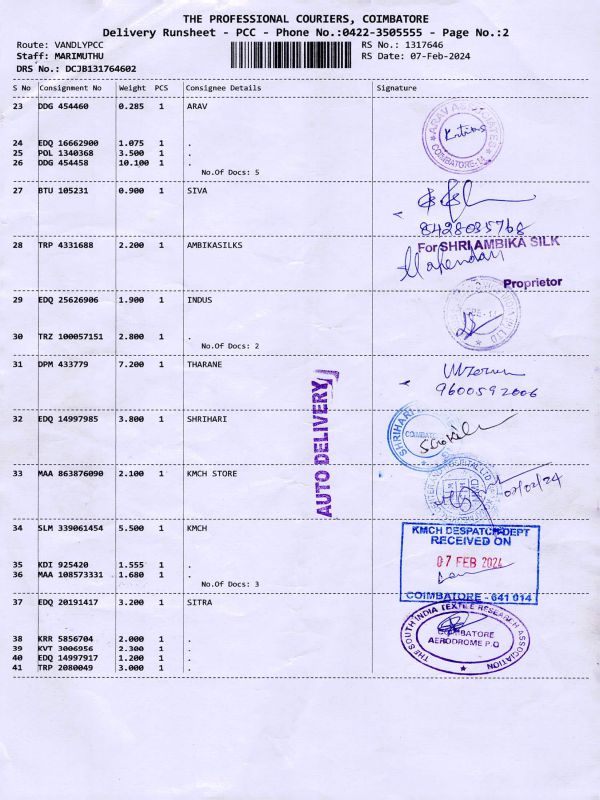 THE PROFESSIONAL COURIERS, COIMBATORE
Delivery Runsheet - PCC - Phone No.:0422-3505555 - Page No.:2
Route: VANDLYPCC RS No.: 1317646
Staff: MARIMUTHU RS Date: 07-Feb-2024
DRS No.: DCJB131764602
S No Consignment No Weight PCS Consignee Details Signature
23 DDG 454460 0.285 1 ARAV
ARAV ASSOCIATES
COIMBATORE
24 EDQ 16662900 1.075 1 .
25 POL 1340368 3.500 1 .
26 DDG 454458 10.100 1 .
No.Of Docs: 5
27 BTU 105231 0.900 1 SIVA
8428035768
28 TRP 4331688 2.200 1 AMBIKASILKS
For SHRI AMBIKA SILK
Mahendar
Proprietor
29 EDQ 25626906 1.900 1 INDUS
30 TRZ 100057151 2.800 1 .
No.Of Docs: 2
31 DPM 433779 7.200 1 THARANE
9600592006
AUTO DELIVERY
32 EDQ 14997985 3.800 1 SHRIHARI
SHRIHARI
33 MAA 863876090 2.100 1 KMCH STORE
07/02/24
34 SLM 339061454 5.500 1 KMCH
KMCH DESPATCH DEPT
RECEIVED ON
07 FEB 2024
COIMBATORE - 641 014
35 KDI 925420 1.555 1 .
36 MAA 108573331 1.680 1 .
No.Of Docs: 3
37 EDQ 20191417 3.200 1 SITRA
THE SOUTH INDIA TEXTILE RESEARCH ASSOCIATION
COIMBATORE
AERODROME P.O
38 KRR 5856704 2.000 1 .
39 KVT 3006956 2.300 1 .
40 EDQ 14997917 1.200 1 .
41 TRP 2080049 3.000 1 .